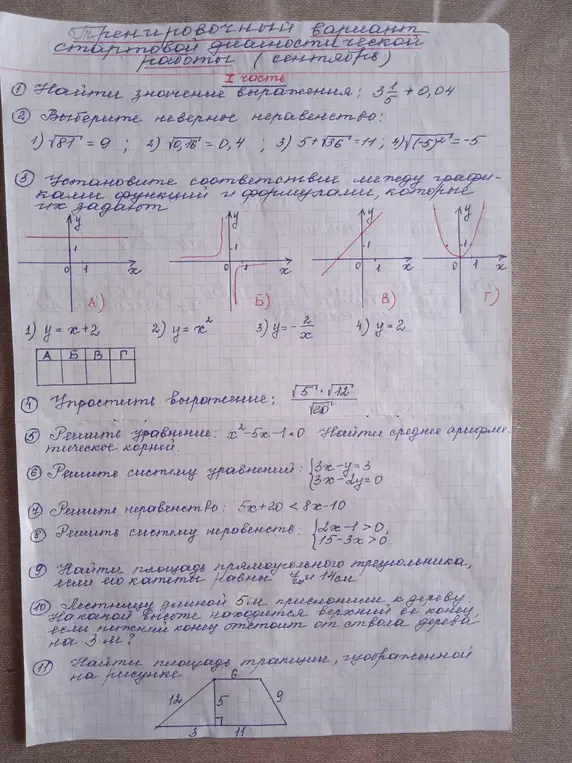 Тренировочный вариант
стартовой диагностической
работы (сентябрь)
I часть
① Найти значение выражения: 3 1/5 + 0,04
② Выберите неверное неравенство:
1) √81 = 9 ; 2) √0,16 = 0,4 ; 3) 5+√36 = 11 ; 4) √(-5)² = -5
③ Установите соответствие между графи-
ками функций и формулами, которые
их задают
y y y y
1 1 1 1
0 1 x 0 1 x 0 1 x 0 1 x
А) Б) В) Г)
1) y = x+2 2) y = x² 3) y = - 2/x 4) y = 2
А Б В Г
④ Упростить выражение: √5 · √12 / √20
⑤ Решить уравнение: x²-5x-1=0 Найти среднее арифме
тическое корней.
⑥ Решите систему уравнений: {3x-y=3
3x-2y=0
⑦ Решите неравенство: 5x+20 < 8x-10
⑧ Решить систему неравенств: {2x-1>0,
15-3x>0.
⑨ Найти площадь прямоугольного треугольника,
если его катеты равны 4 см и 14 см
⑩ Лестницу длиной 5 м прислонили к дереву.
На какой высоте находится верхний её конец,
если нижний конец отстоит от ствола дерева
на 3 м?
⑪ Найти площадь трапеции, изображённой
на рисунке
6
12 5 9
3 11